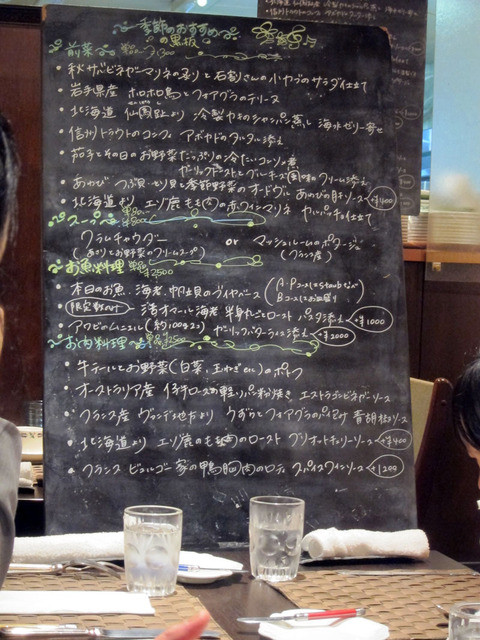 季節のおすすめ
の黒板
前菜
・秋サバビネガーマリネの炙りと石割さんの小カブのサラダ仕立て
・岩手県産 ホロホロ鳥とフォアグラのテリーヌ
・北海道 仙鳳趾より 冷製カキのシャンパン蒸し 海水ゼリー寄せ
・信州トラウトのコンフィ アボカドのタルタル添え
・茄子とその日のお野菜たっぷりの冷たいコンソメ煮
ガーリックトーストとブルーチーズ風味のクリーム添え
・あわび つぶ貝・とり貝と季節野菜のオードヴル あわびの肝ソース +¥400
・北海道より エゾ鹿もも肉の赤ワインマリネ カルパッチョ仕立て
スープ 単品 ¥800
クラムチャウダー or マッシュルームのポタージュ
(あさりとお野菜のクリームスープ) (フランス産)
お魚料理 単品 ¥2500
・本日のお魚、海老、帆立貝のブイヤベース
限定数のみ 活オマール海老 半身丸ごとロースト パスタ添え +¥1000
・アワビのムニエル(約100gココ) ガーリックバターライス添え +¥2000
お肉料理
・牛テールとお野菜(白菜、玉ねぎetc)のポトフ
・オーストラリア産 仔羊ロースの軽いパン粉焼き エストラゴンビネガーソース
・フランス産 ヴァンデ地方より うずらとフォアグラのパイ包み 青胡椒ソース
・北海道より エゾ鹿のもも肉のロースト グリオットチェリーソース +¥400
・フランス ビュルゴー家の鴨胸肉のロティ スパイスワインソース +1200